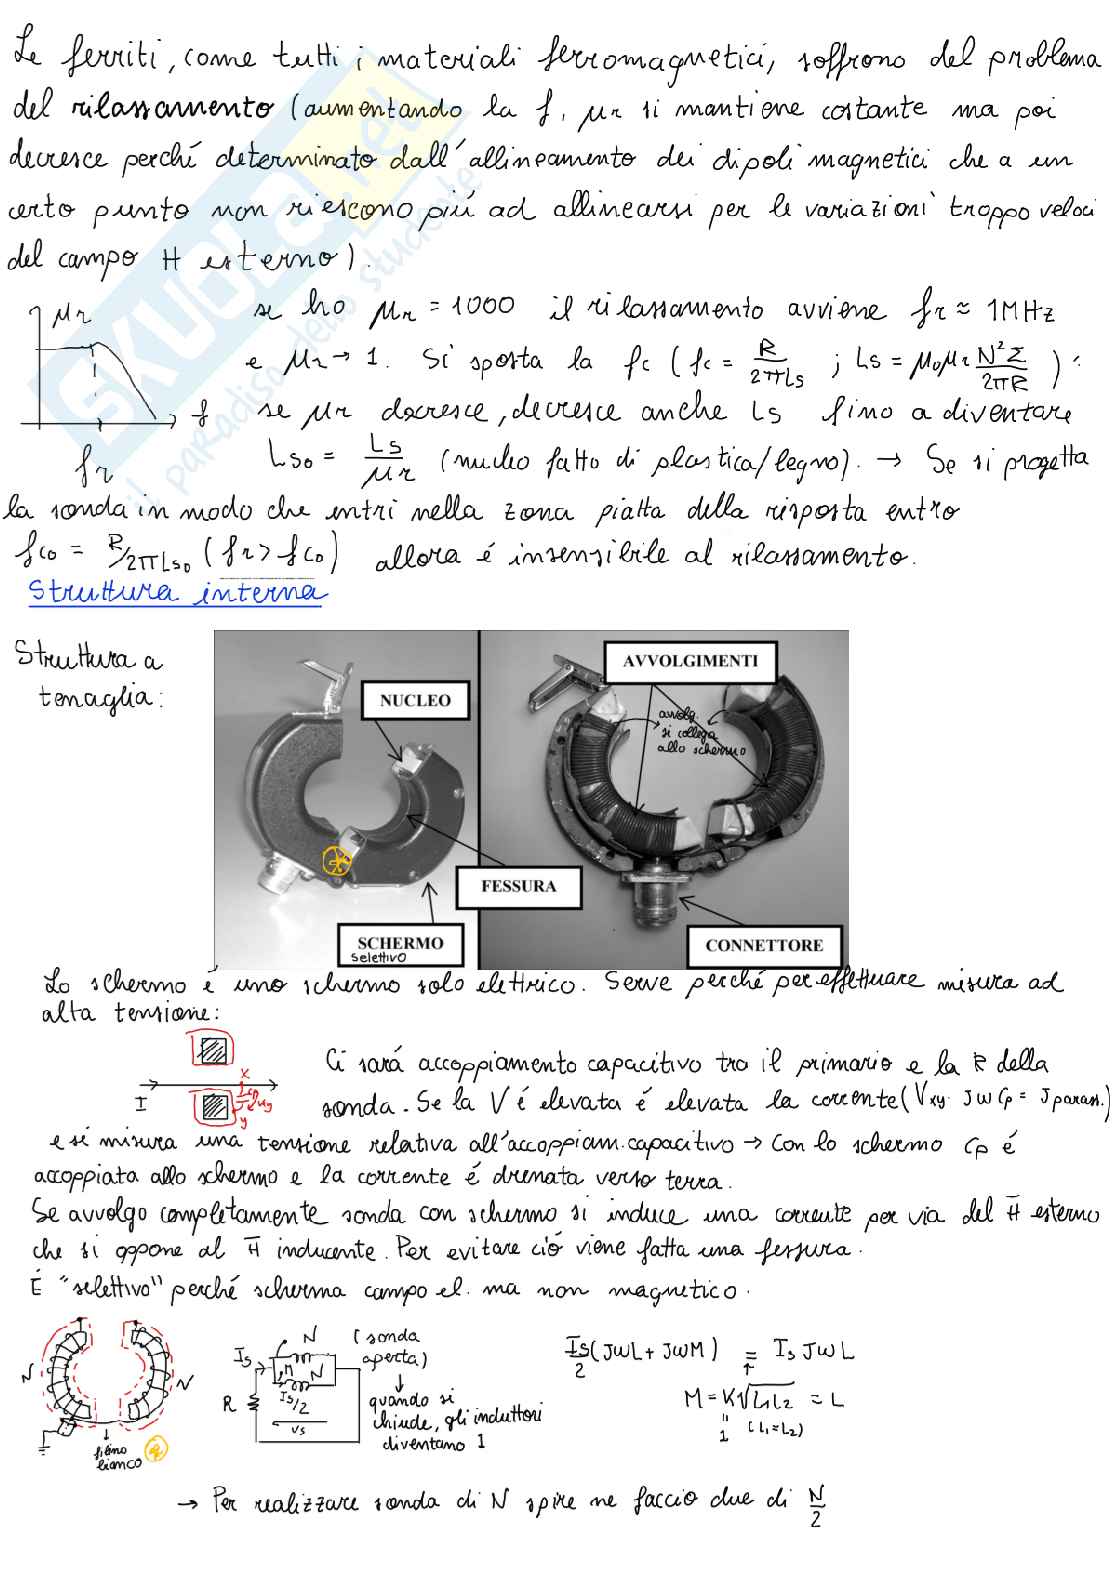 Le ferriti, come tutti i materiali ferromagnetici, soffrono del problema
del rilassamento (aumentando la f, μr si mantiene costante ma poi
decresce perché determinato dall'allineamento dei dipoli magnetici che a un
certo punto non riescono piú ad allinearsi per le variazioni troppo veloci
del campo H esterno).
SKUOLA.net
il paradiso dello studente
μr
f
fr
se ho μr = 1000 il rilassamento avviene fr ≈ 1MHz
e μr → 1. Si sposta la fc (fc = R/2πLs ; Ls = μ0μr N²Σ/2πR) :
se μr decresce, decresce anche Ls fino a diventare
Ls0 = Ls/μr (nucleo fatto di plastica/legno). → Se si progetta
la sonda in modo che entri nella zona piatta della risposta entro
fc0 = R/2πLs0 (fr > fc0) allora é insensibile al rilassamento.
Struttura interna
Struttura a
tenaglia:
NUCLEO
AVVOLGIMENTI
avvolg.
si collega
allo schermo
FESSURA
SCHERMO
selettivo
CONNETTORE
Lo schermo é uno schermo solo elettrico. Serve perché per effettuare misura ad
alta tensione:
I
x
Cp
y
Ci sará accoppiamento capacitivo tra il primario e la R della
sonda. Se la V é elevata é elevata la corrente (Vxy · jωCp = Jparass.)
e si misura una tensione relativa all'accoppiam. capacitivo → Con lo schermo Cp é
accoppiata allo schermo e la corrente é drenata verso terra.
Se avvolgo completamente sonda con schermo si induce una corrente per via del H̄ esterno
che si oppone al H̄ inducente. Per evitare ció viene fatta una fessura.
É "selettivo" perché scherma campo el. ma non magnetico.
N
N
filino
bianco
Is
N
M
N
R
Is/2
Vs
(sonda
aperta)
quando si
chiude, gli induttori
diventano 1
Is/2 (jωL + jωM) = Is jωL
M = K√L1L2 = L
1
(L1=L2)
→ Per realizzare sonda di N spire ne faccio due di N/2